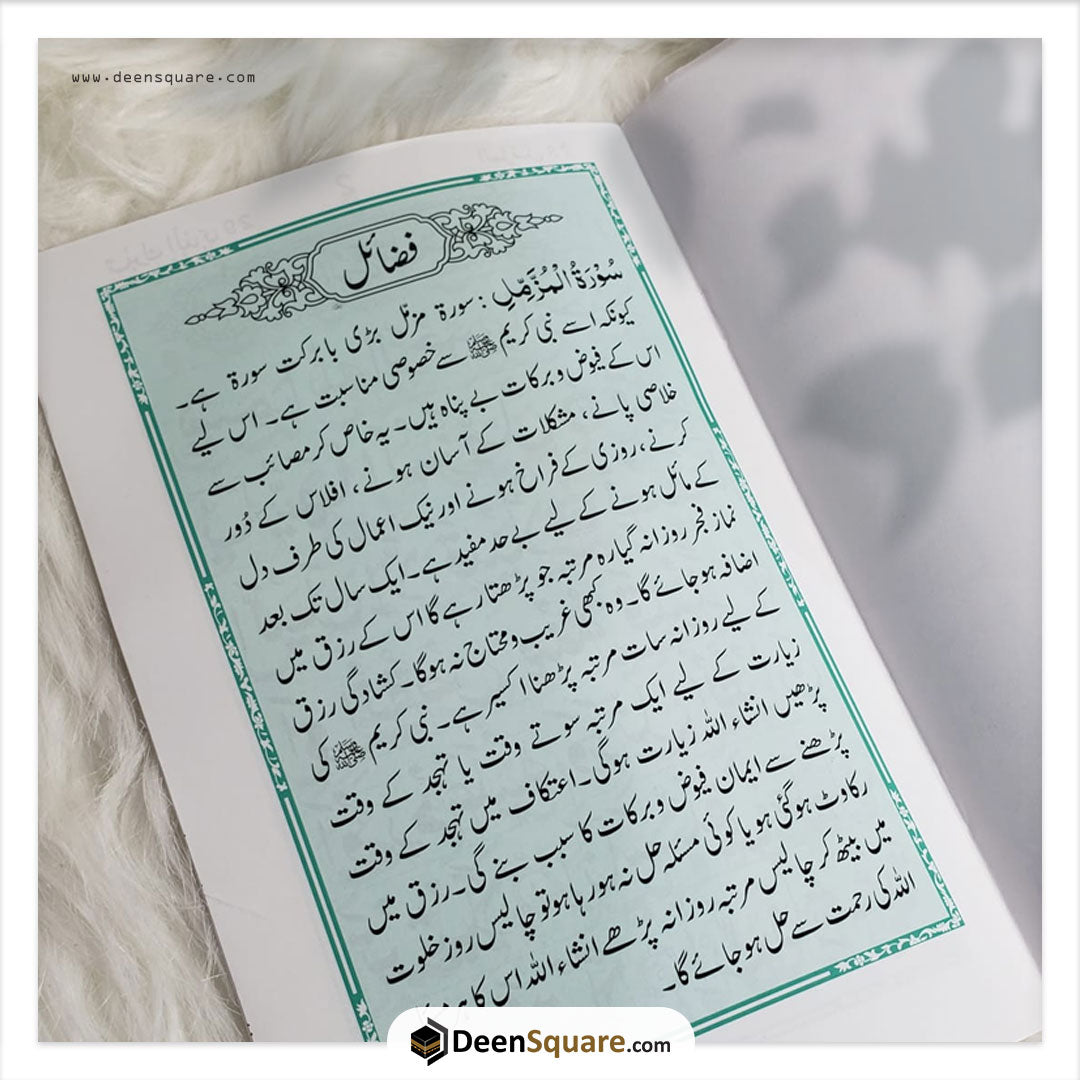 www.deensquare.com
فضائل
سُوْرَةُ الْمُزَّمِّلِ : سورۃ مزمّل بڑی بابرکت سورۃ ہے۔
کیونکہ اسے نبی کریم ﷺ سے خصوصی مناسبت ہے۔ اس لیے
اس کے فیوض و برکات بے پناہ ہیں۔ یہ خاص کر مصائب سے
خلاصی پانے، مشکلات کے آسان ہونے، افلاس کے دُور
کرنے، روزی کے فراخ ہونے اور نیک اعمال کی طرف دل
کے مائل ہونے کے لیے بے حد مفید ہے۔ ایک سال تک بعد
نماز فجر روزانہ گیارہ مرتبہ جو پڑھتا رہے گا اس کے رزق میں
اضافہ ہو جائے گا۔ وہ کبھی غریب و محتاج نہ ہوگا۔ کشادگی رزق
کے لیے روزانہ سات مرتبہ پڑھنا اکسیر ہے۔ نبی کریم ﷺ کی
زیارت کے لیے ایک مرتبہ سوتے وقت یا تہجد کے وقت
پڑھیں انشاء اللہ زیارت ہوگی۔ اعتکاف میں تہجد کے وقت
پڑھنے سے ایمان فیوض و برکات کا سبب بنے گی۔ رزق میں
رکاوٹ ہوگئی ہو یا کوئی مسئلہ حل نہ ہو رہا ہو تو چالیس روز خلوت
میں بیٹھ کر چالیس مرتبہ روزانہ پڑھے انشاء اللہ اس کا
اللہ کی رحمت سے حل ہو جائے گا۔
DeenSquare.com